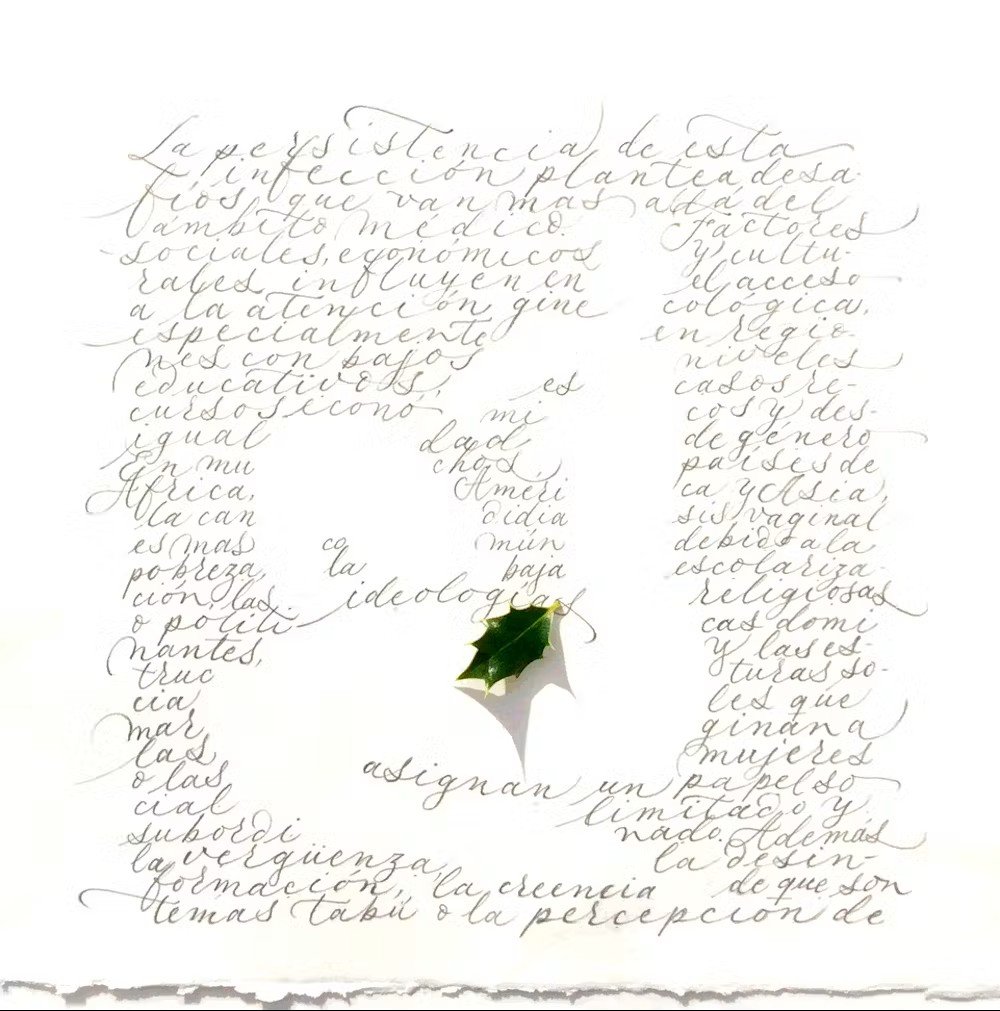 La persistencia de esta
infección plantea desa-
fíos que van mas allá del
ámbito médico. Factores
sociales, económicos y cultu-
rales influyen en el acceso
a la atención gine cológica,
especialmente en regio-
nes con bajos niveles
educativos, es casos re-
cursos econó mi cos y des-
igual dad de género
En mu chos países de
África, Améri ca y Asia,
la can didia sis vaginal
es mas co mún debido a la
pobreza, la baja escolariza-
ción, las ideologías religiosas
o políti- cas domi
nantes, y las es-
truc turas so-
cia les que
mar ginan a
las mujeres
o las asignan un papel so
cial limitado y
subordi nado. Además
la vergüenza, la desin-
formación, la creencia de que son
temas tabú o la percepción de